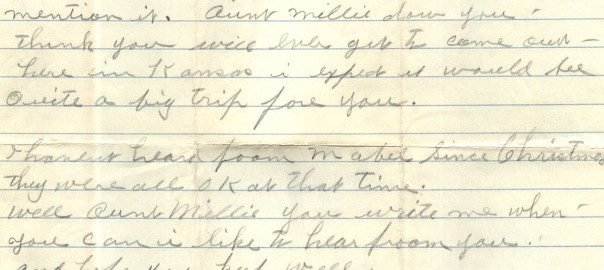 mention it. Aunt Millie dow you-
think you will ever get to come out-
here in Kansas i expect it would bee
Quite a big trip fore you.
i havent heard from Mabel since Christmas
they were all OK at that time.
well Aunt Millie you write me when-
you can i like to hear from you.
and hope you keep well.